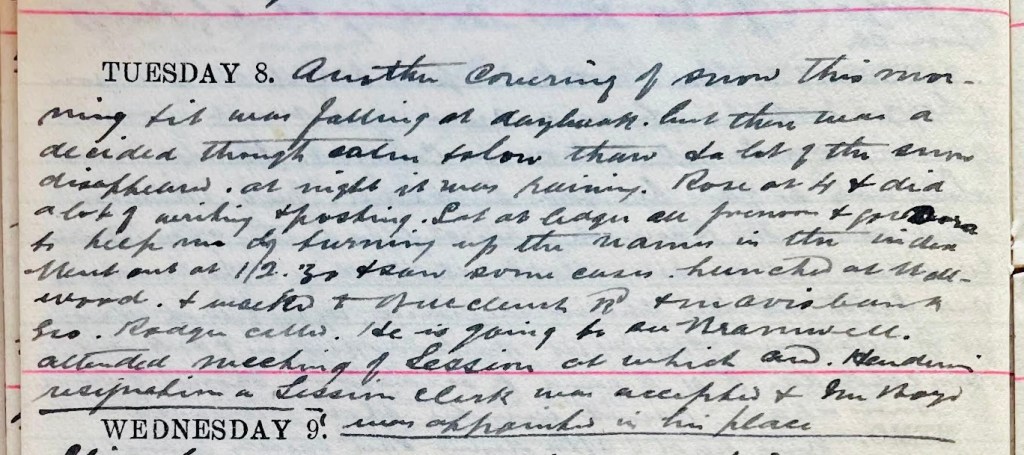 TUESDAY 8. Another Covering of snow this mor-
ning & it was falling at daybreak. but there was a
decided though calm & slow thaw & a lot of the snow
disappeared. at night it was raining. Rose at 4 & did
a lot of writing & posting. Sat at ledger all forenoon & got Dora
to help me by turning up the names in the index
Went out at 12.30 & saw some cases. Lunched at Wall-
wood. & walked to Buccleuch Rd & Mavisbank
Geo. Rodger called. He is going to see Bramwell.
attended meeting of Session at which Henderson
resignation as Session Clerk was accepted & Mr Boyd
WEDNESDAY 9. was appointed in his place